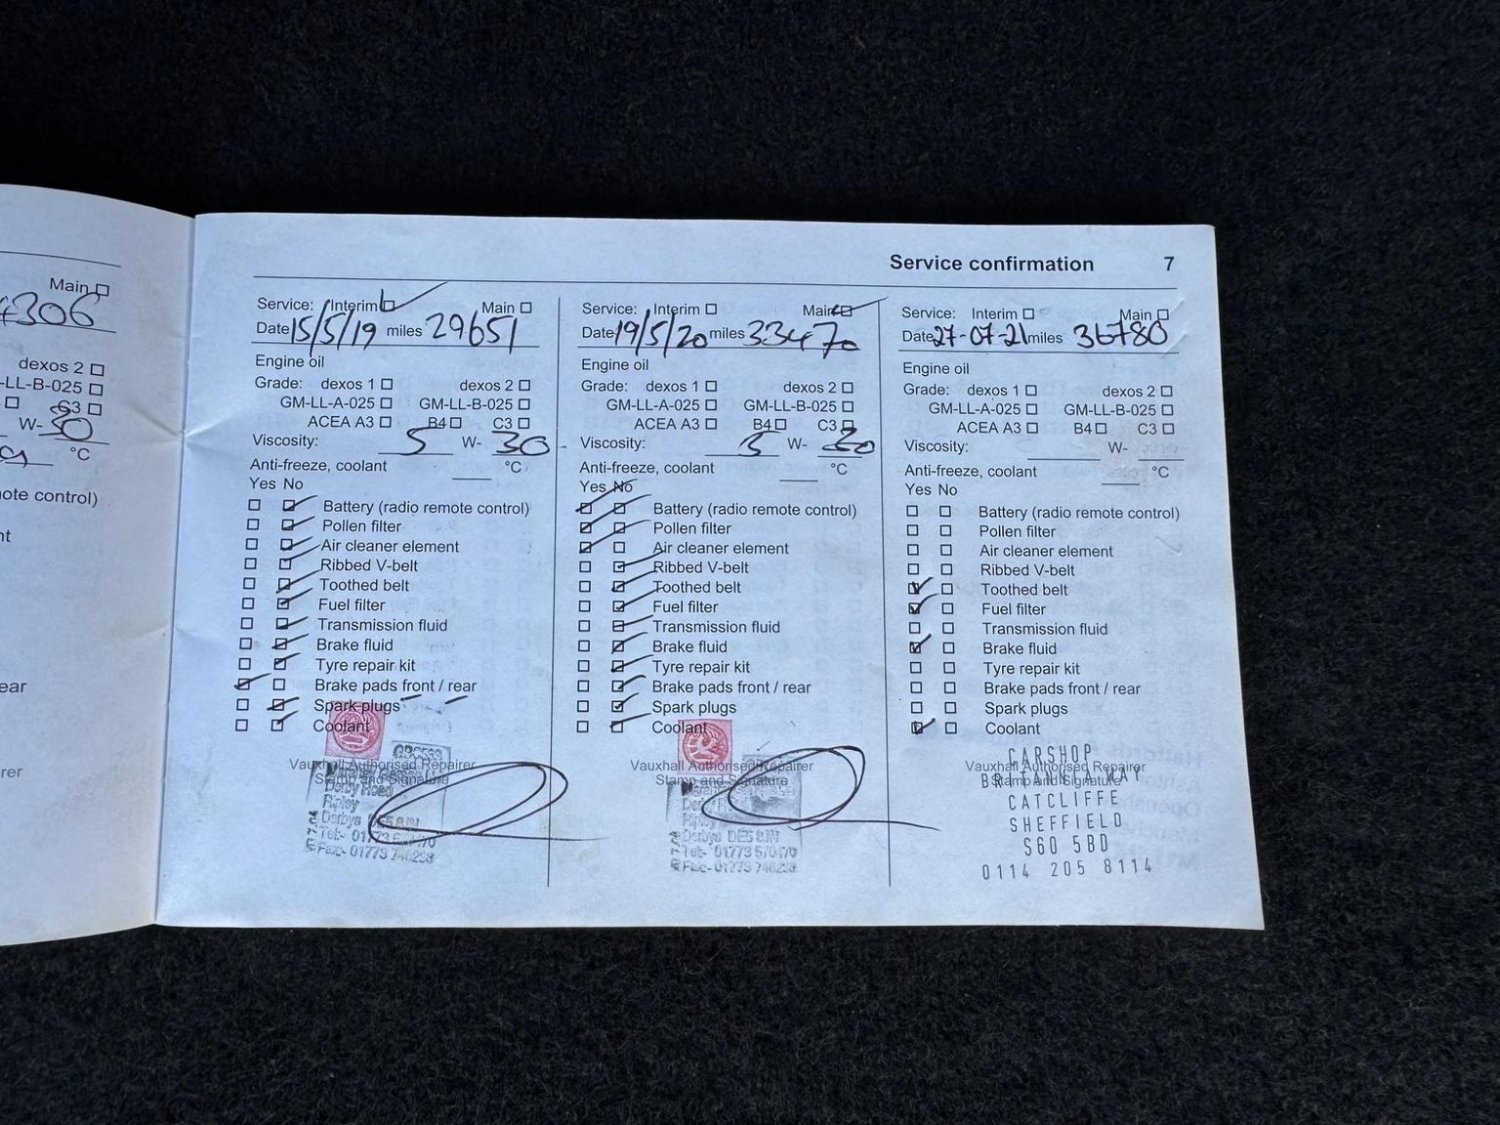 Main
4306
dexos 2
-LL-B-025
C3
W- 30
°C
ote control)
nt
ear
rer
Service confirmation 7
Service: Interim Main
Date 15/5/19 miles 29651
Engine oil
Grade: dexos 1 dexos 2
GM-LL-A-025 GM-LL-B-025
ACEA A3 B4 C3
Viscosity: 5 W- 30
Anti-freeze, coolant °C
Yes No
Battery (radio remote control)
Pollen filter
Air cleaner element
Ribbed V-belt
Toothed belt
Fuel filter
Transmission fluid
Brake fluid
Tyre repair kit
Brake pads front / rear
Spark plugs
Coolant
Vauxhall Authorised Repairer
Stamp and Signature
Derby Road
Ripley
Derbys
Tel:- 01773
Fax:- 01773
Service: Interim Main
Date 19/5/20 miles 33470
Engine oil
Grade: dexos 1 dexos 2
GM-LL-A-025 GM-LL-B-025
ACEA A3 B4 C3
Viscosity: 5 W- 30
Anti-freeze, coolant °C
Yes No
Battery (radio remote control)
Pollen filter
Air cleaner element
Ribbed V-belt
Toothed belt
Fuel filter
Transmission fluid
Brake fluid
Tyre repair kit
Brake pads front / rear
Spark plugs
Coolant
Vauxhall Authorised Repairer
Stamp and Signature
Derbys
Tel:- 01773
Fax:- 01773
Service: Interim Main
Date 27-07-21 miles 36780
Engine oil
Grade: dexos 1 dexos 2
GM-LL-A-025 GM-LL-B-025
ACEA A3 B4 C3
Viscosity: W-
Anti-freeze, coolant °C
Yes No
Battery (radio remote control)
Pollen filter
Air cleaner element
Ribbed V-belt
Toothed belt
Fuel filter
Transmission fluid
Brake fluid
Tyre repair kit
Brake pads front / rear
Spark plugs
Coolant
CARSHOP
Vauxhall Authorised Repairer
BRITANNIA WAY
Stamp and Signature
CATCLIFFE
SHEFFIELD
S60 5BD
0114 205 8114